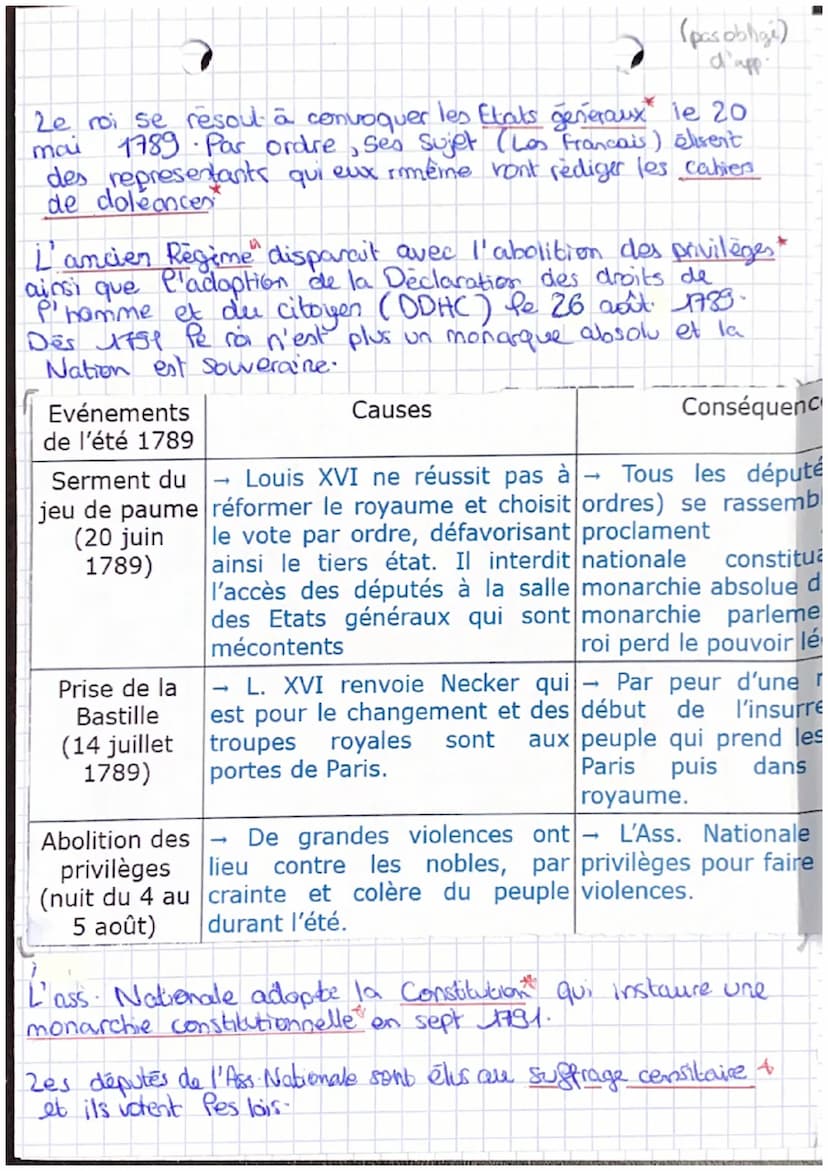 (pas obligé)
d'app.
Le roi se résout à convoquer les Etats généraux* le 20
mai 1789. Par ordre, ses sujet (Les francais) élisent
des representants qui eux même vont rédiger les cahiers
de doléances*
L'ancien Régime disparait avec l'abolition des privilèges*
ainsi que l'adoption de la Déclaration des droits de
l'homme et du citoyen (DDHC) le 26 août 1789.
Dès 1791 le roi n'est plus un monarque absolu et la
Nation est souveraine.
Evénements
de l'été 1789
Causes
Conséquenc
Serment du
jeu de paume
(20 juin
1789)
→ Louis XVI ne réussit pas à
réformer le royaume et choisit
le vote par ordre, défavorisant
ainsi le tiers état. Il interdit
l'accès des députés à la salle
des Etats généraux qui sont
mécontents
→ Tous les déput
ordres) se rassemb
proclament
nationale constitu
monarchie absolue d
monarchie parleme
roi perd le pouvoir lé
Prise de la
Bastille
(14 juillet
1789)
→ L. XVI renvoie Necker qui
est pour le changement et des
troupes royales sont aux
portes de Paris.
→ Par peur d'une
début de l'insurre
peuple qui prend les
Paris puis dans
royaume.
Abolition des
privilèges
(nuit du 4 au
5 août)
→ De grandes violences ont
lieu contre les nobles, par
crainte et colère du peuple
durant l'été.
→ L'Ass. Nationale
privilèges pour faire
violences.
L'ass. Nationale adopte la Constitution* qui instaure une
monarchie constitutionnelle* en sept 1791.
Les députés de l'Ass. Nationale sont élus au suffrage censitaire *
et ils votent les lois.